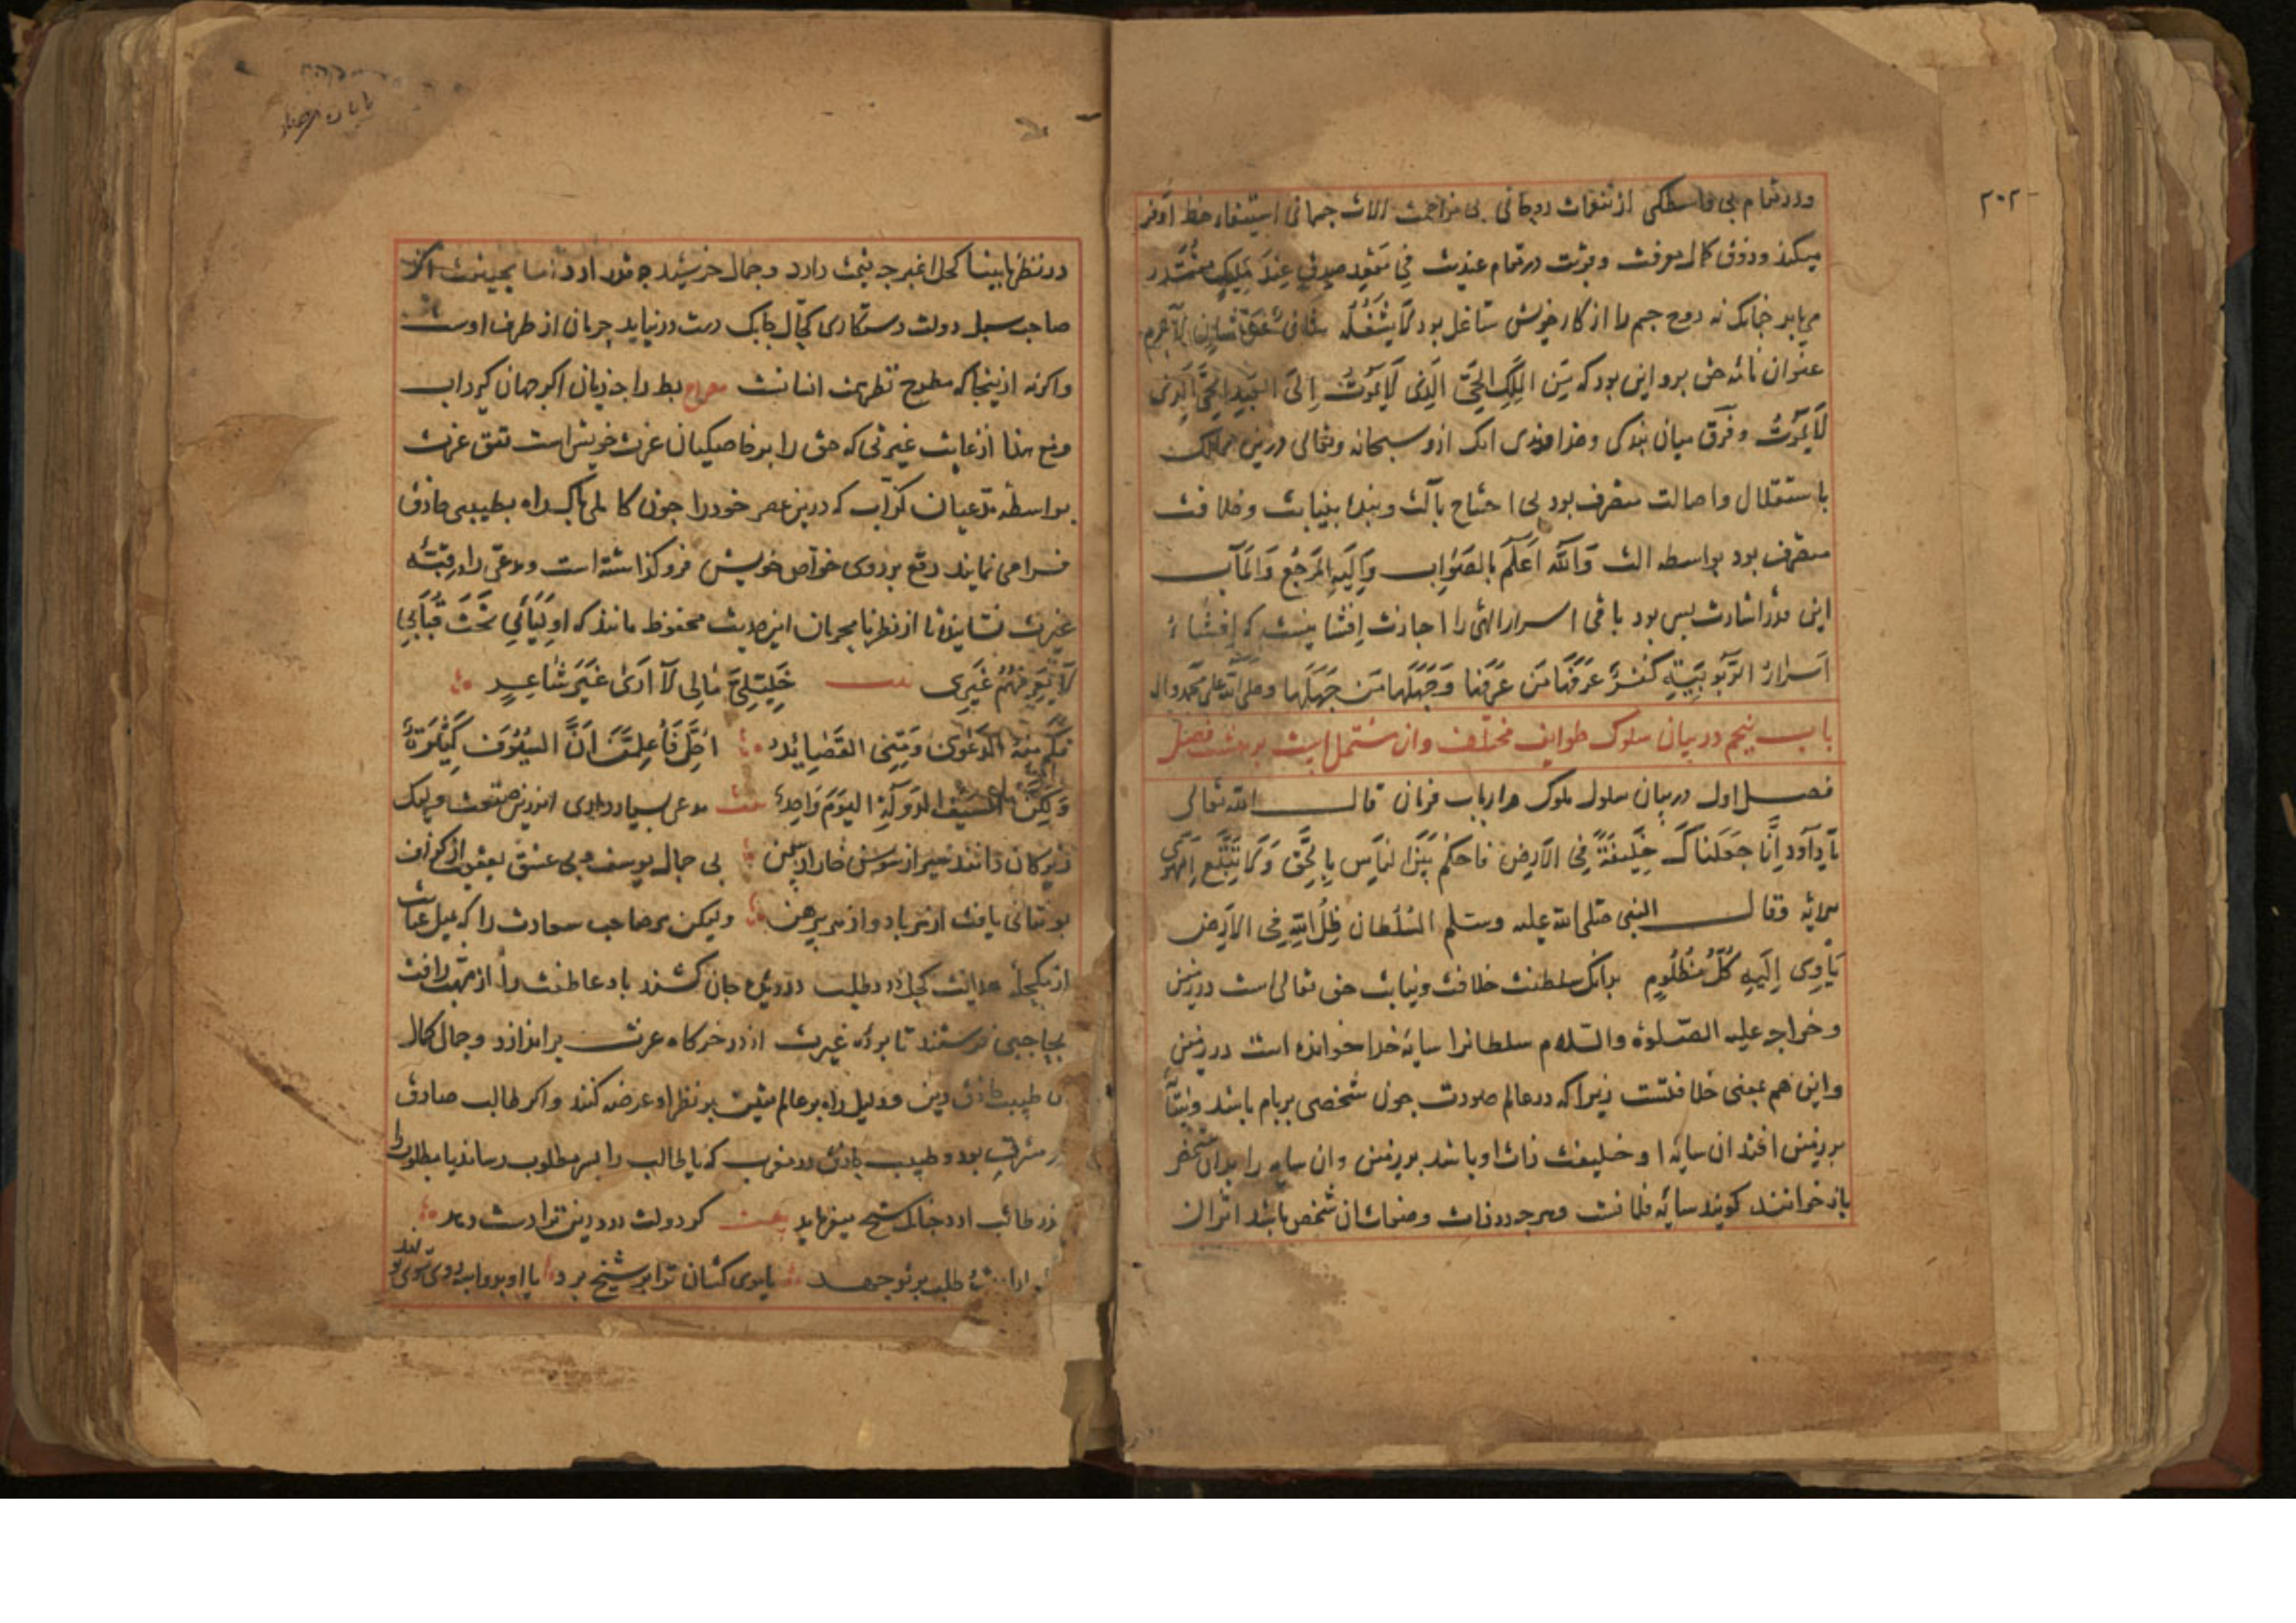 ۲۰۲
ودر مقام بی واسطگی از تنعمات روحانی بی مزاحمت آلات جسمانی استیفاء حظ اوفر
میکند وذوق کمال معرفت وقربت در مقام عندیت فِی مَقْعَدِ صِدْقٍ عِنْدَ مَلِیکٍ مُقْتَدِر
می یابد جنانک نه روح جسم را از کار خویش شاغل بود لَا یَشْغَلُهُ شَانٌ عَنْ شَانٍ لاجرم
عنوان نامه حق برو این بود که مِنَ المَلِکِ الحَیِّ الَّذِی لَا یَمُوتُ اِلَی العَبْدِ الحَیِّ الَّذِی
لَا یَمُوتُ وفرق میان بندکی وخداوندی انک او سبحانه وتعالی درین ممالک
باستقلال واصالت متصرف بود بی احتیاج بآلت وبنده بنیابت وخلافت
متصرف بود بواسطه الت وَاللّٰه اَعلَمُ بِالصَّوَابِ وَاِلَیهِ المَرْجَعُ وَالمَآبُ
این قدر اشارت بس بود باقی اسرار الهی را اجازت اِفشا نیست که اِفْشَاءُ
اَسْرَارِ الرُّبُوبِیَّةِ کُفْرٌ عَرَفَهَا مَنْ عَرَفَهَا وَجَهِلَهَا مَنْ جَهِلَهَا وصلی الله علی محمد واله
باب پنجم در بیان سلوک طوایف مختلف وان مشتمل است بر هشت فصل
فصل اول در بیان سلوک ملوک وارباب فرمان قال الله تعالی
یَا دَاوُد اِنَّا جَعَلنَاکَ خَلِیفَةً فِی الاَرضِ فاحکُم بَیْنَ النَّاسِ بِالحَقِّ وَلَا تَتَّبِعِ الهَوَی
الایه وقال النبی صلی الله علیه وسلم السُلْطَان ظِلُّ اللهِ فِی الاَرْضِ
یَاوِی اِلَیهِ کُلُّ مَظْلُومٍ بدانک سلطنت خلافت ونیابت حق تعالی است در زمین
وخواجه علیه الصلوة والسلام سلطانرا سایه خدا خوانده است در زمین
واین هم بمعنی خلافتست زیرا که در عالم صورت جون شخصی بر بام باشد
بر زمین افتد ان سایه او خلیفت ذات او باشد بر زمین وان سایه را بدان شخص
باز خوانند کویند سایه فلانست وهرجه در ذات وصفات ان شخص باشد اثر ان
در نظر نابینا کحل اغبر جه قیمت دارد وجمال خرشید جه قدر ارد اما بحقیقت اکر
صاحب سبل دولت دستکاری کحال جابک دست در نیابد حرمان از طرف اوست
واکرنه ازینجا که مطرح نظر همت انسانست مصراع بط را جه زیان اکر جهان کیرد اب
ومع هذا از غایت غیرتی که حق را بر خاصکیان عزت خویش است تتق عزت
بواسطه مدعیان کذاب که درین عصر خود را جون کاملی پاک راه بطبیبی حاذق
فرا می نمایند برقع بر روی خواص خویش فرو کذاشته است ومدعی را
غیرت نشانده تا از نظر نامحرمان این حدیث محفوظ مانند که اولِیَائِی تَحْتَ قُبَابِی
لَا یَعرِفُهُم غَیرِی بیت خَلِیلَیَّ مَالِی لَا اَرَیٰ غَیرَ شَاعِرٍ
فکم مِنهُمُ الدَعوَی وَمِنِّی القَصَائِد اَخِلَّ فَاعلَمَنَّ اَنَّ السُیُوفَ کَثِیرَةٌ
وَلٰکِنَّ سَیفَ الدَولَةِ الیَومَ وَاحِدٌ بیت مدعی بسیار داری اندرین صنعت ولیک
زیرکان دانند سیر از سوسن خار از سمن بی جمال یوسف وبی عشق یعقوب از کزاف
تو نتانی یافت از هر باد واز هر پیرهن ولیکن هر صاحب سعادت را که میل عنایت
از مکحله هدایت کحل درد طلب در دیده جان کشند باد عاطفت را از مهب رافت
بحاجبی فرستند تا برده غیرت از در خرکاه عزت براندازد وجمال کمال
ان طبیب حاذق دین ودلیل راه بر عالم یقین بر نظر او عرضه کنند واکر طالب صادق
در مشرق بود وطبیب حاذق در مغرب که یا طالب را بسر مطلوب رساند یا مطلوب را
بدر طالب ارد جنانک شیخ میفرماید بیت کر دولت درد دین ترا دست دهد
طلب بر تو جهد یا موی کشان ترا بر شیخ برد یا او بدواسبه روی سوی تو نهد